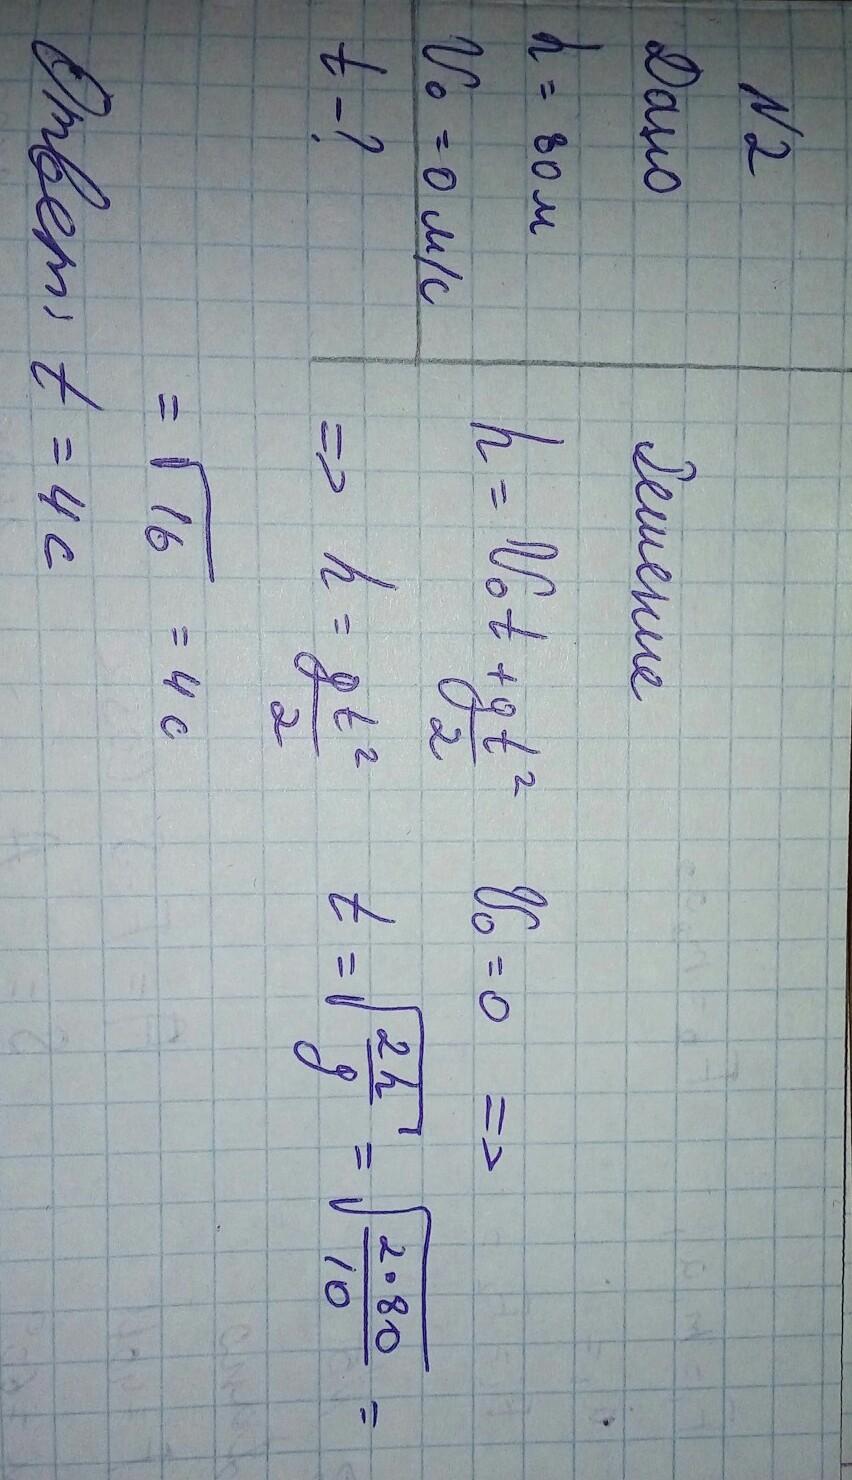 N2
Дано
h = 80 м
V₀ = 0 м/с
t - ?
Решение
h = V₀t + gt²/2 V₀ = 0 =>
=> h = gt²/2 t = √(2h/g) = √(2·80/10) =
= √16 = 4 с
Ответ: t = 4 с